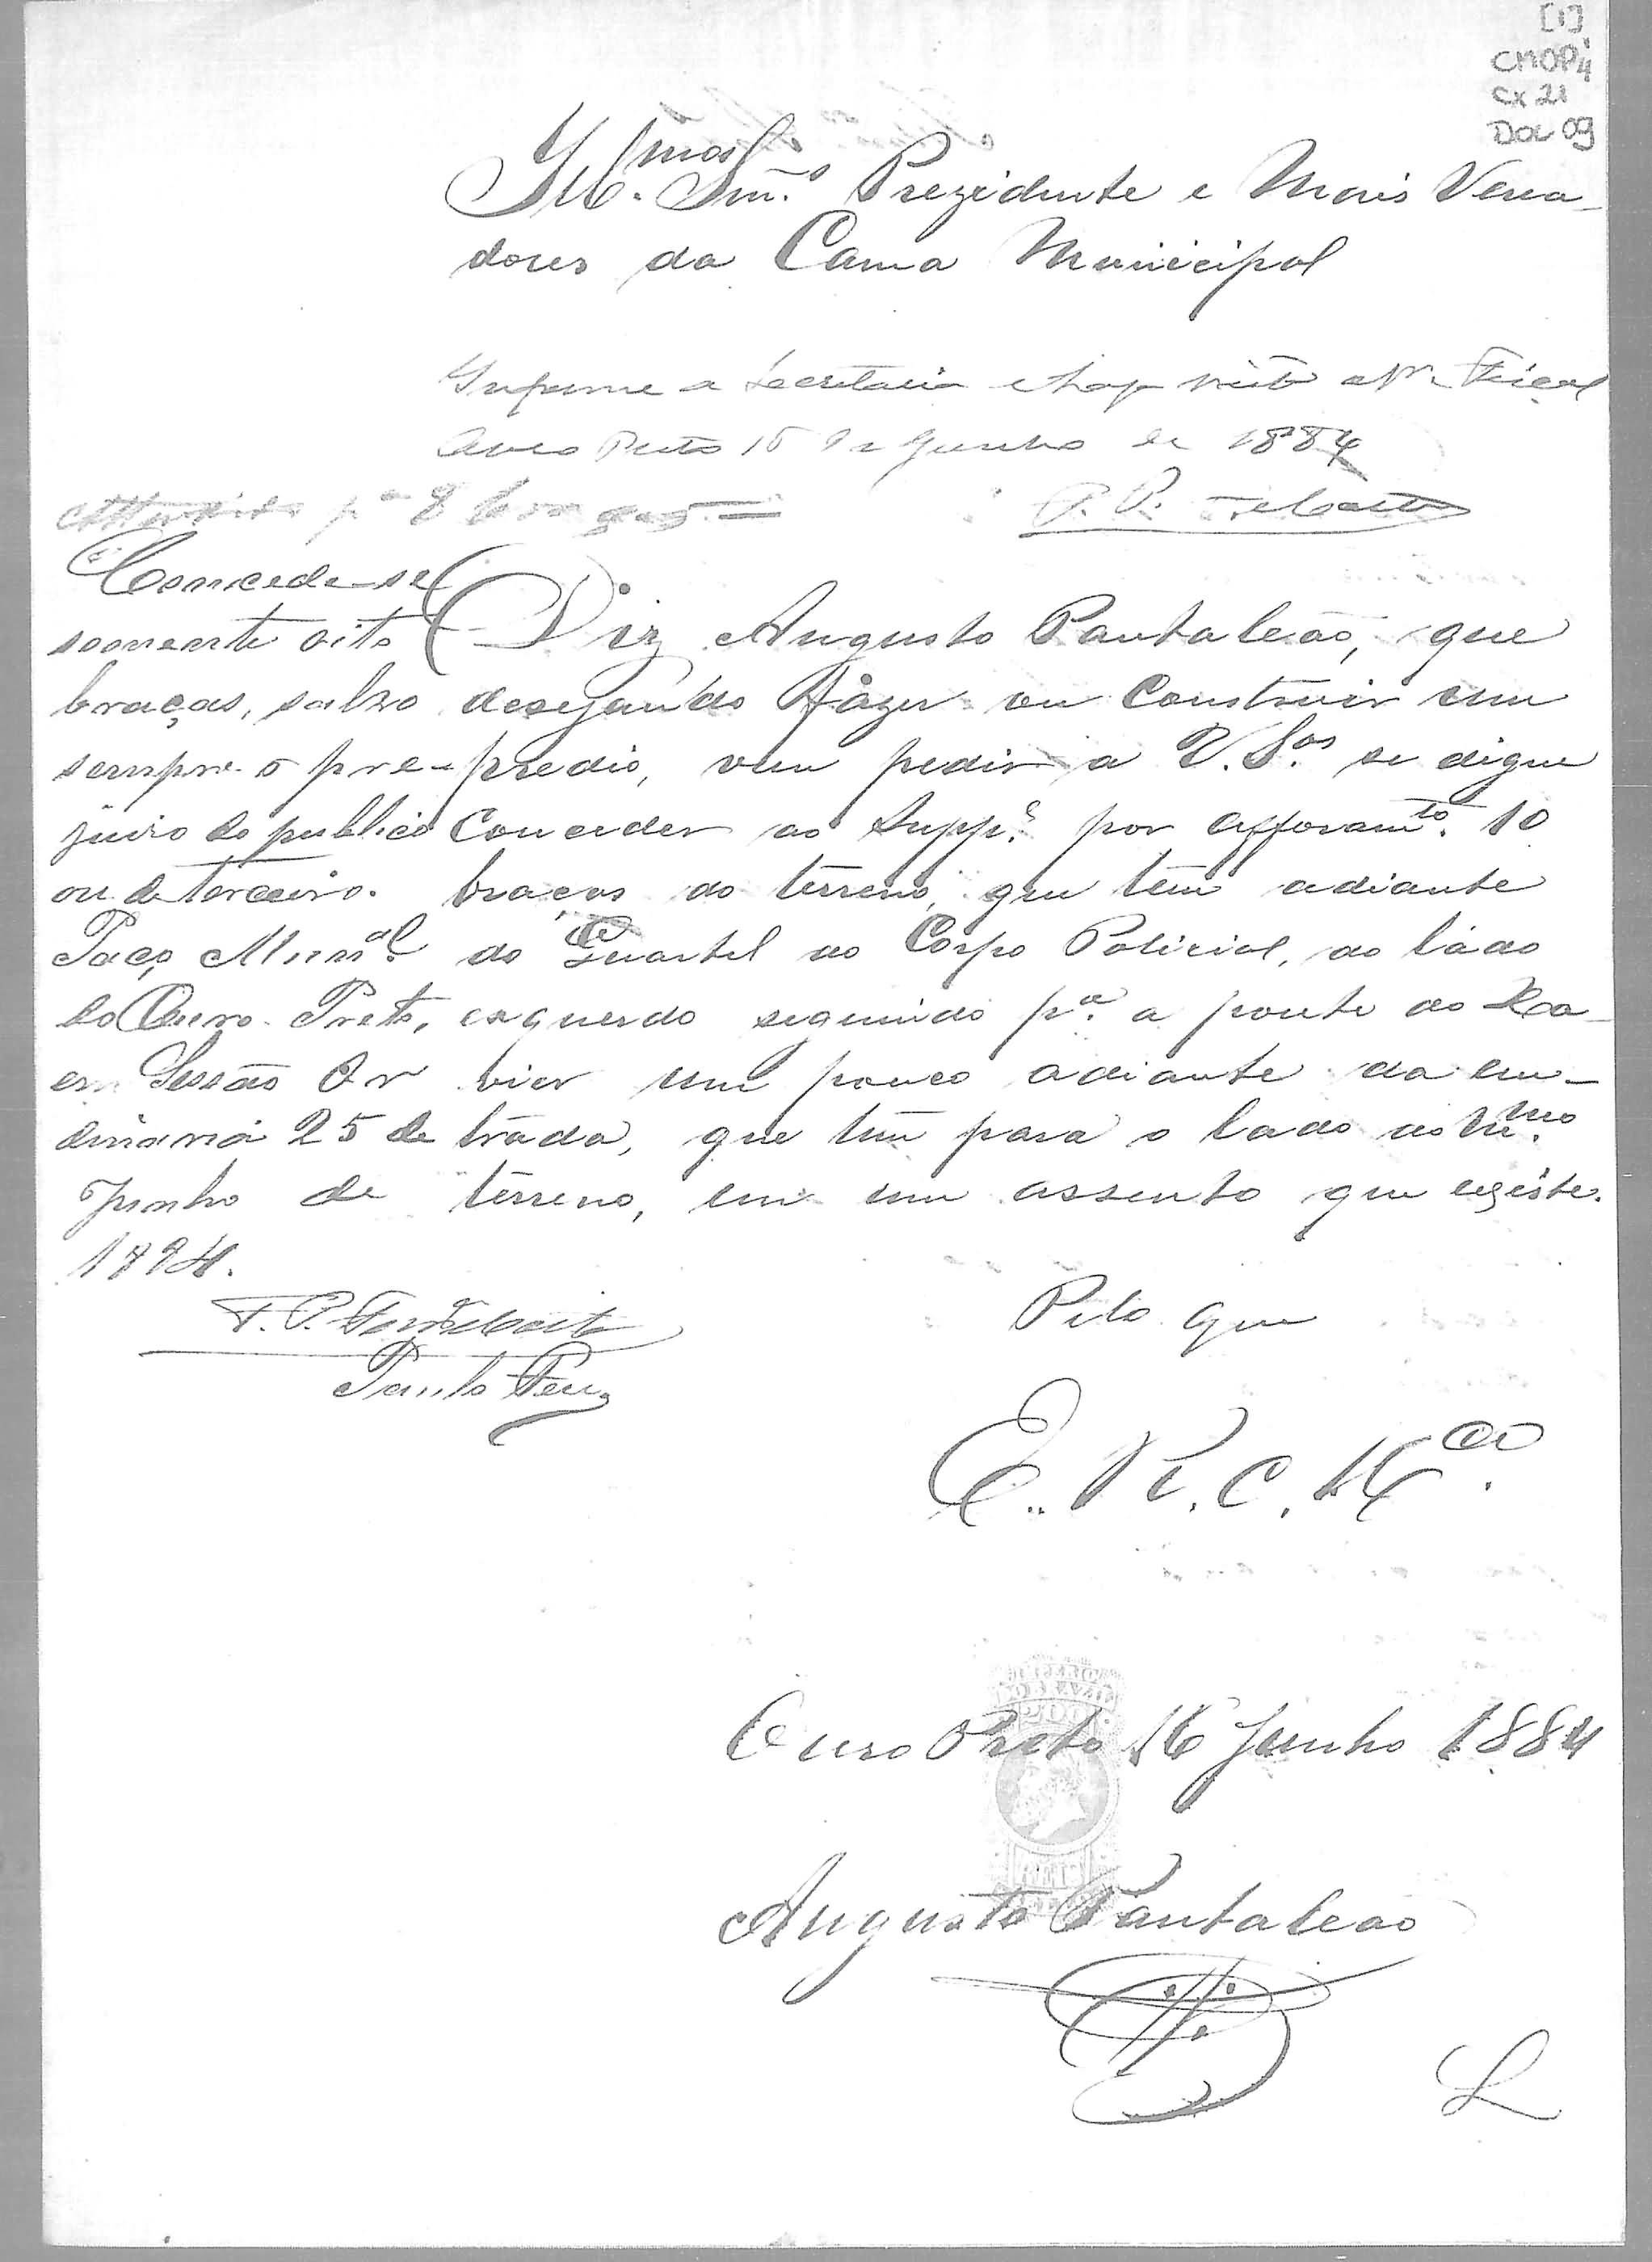 [1]
CMOP
Cx 21
DOC 09
Ill.mos Snr.s Prezidente e Mais Verea-
dores da Camra Municipal
Informe a Secretaria e haja vista o Sr. Fiscal
Ouro Preto 15 de Junho de 1884
Attendido p.a 8 braças
Concede-se
somente oito
braças, salvo
sempre o pre-
juizo do publico
ou de terceiro.
Paço Mun.al
do Ouro-Preto,
em Sessão Or
dinaria 25 de
Junho de
1884.
Paulo
Diz Augusto Pantaleão, que
desejando Fazer ou Construir um
predio, vem pedir a V. S.as se digne
Conceder ao Supp.e por afforam.to 10
braças do terreno, que tem adiante
do Quartel do Corpo Policial, ao lado
esquerdo seguindo p.a a ponte do Xa-
vier um pouco adiante da en-
trada, que tem para o lado do
terreno, em um assento que egiste.
Pelo que
E. R. C. M.ce
Ouro Preto 16 Junho 1884
200
REIS
Augusto Pantaleão